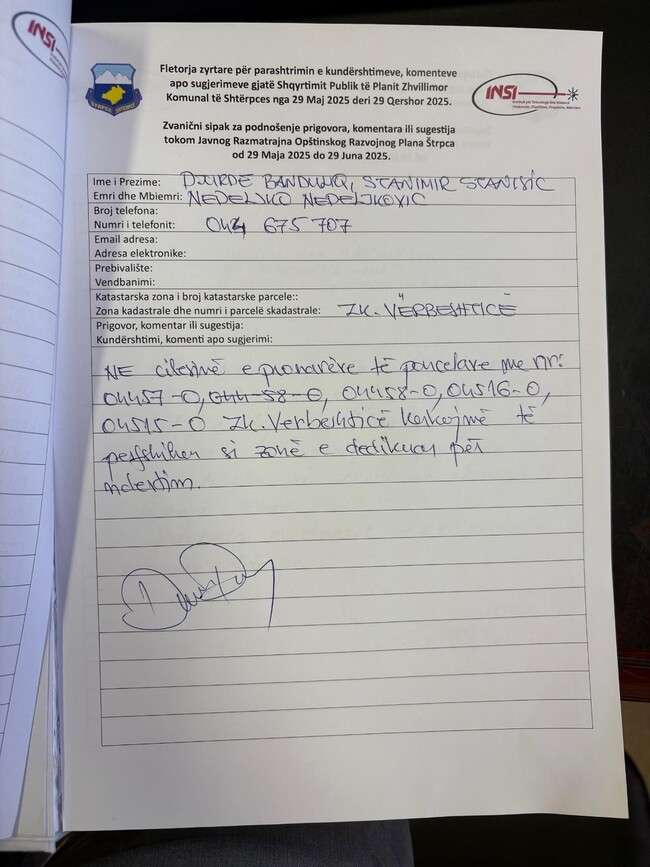 INSI
Fletorja zyrtare për parashtrimin e kundërshtimeve, komenteve
apo sugjerimeve gjatë Shqyrtimit Publik të Planit Zhvillimor
Komunal të Shtërpces nga 29 Maj 2025 deri 29 Qershor 2025.
INSI
Zvanični sipak za podnošenje prigovora, komentara ili sugestija
tokom Javnog Razmatrajna Opštinskog Razvojnog Plana Štrpca
od 29 Maja 2025 do 29 Juna 2025.
Ime i Prezime: DJURDE BANDULAJ, STANIMIR STANISIC
Emri dhe Mbiemri: NEDELJKO NEDELJKOVIC
Broj telefona:
Numri i telefonit: 044 675 707
Email adresa:
Adresa elektronike:
Prebivalište:
Vendbanimi:
Katastarska zona i broj katastarske parcele::
Zona kadastrale dhe numri i parcelë skadastrale: ZK. VËRBESHTICË
Prigovor, komentar ili sugestija:
Kundërshtimi, komenti apo sugjerimi:
NE cilesinë e pronarëve të parcelave me nr:
04457-0, 044-58-0, 04458-0, 04516-0,
04515-0 ZK. Verbeshticë kerkojmë të
perfshihen si zonë e dedikuar për
ndertim.